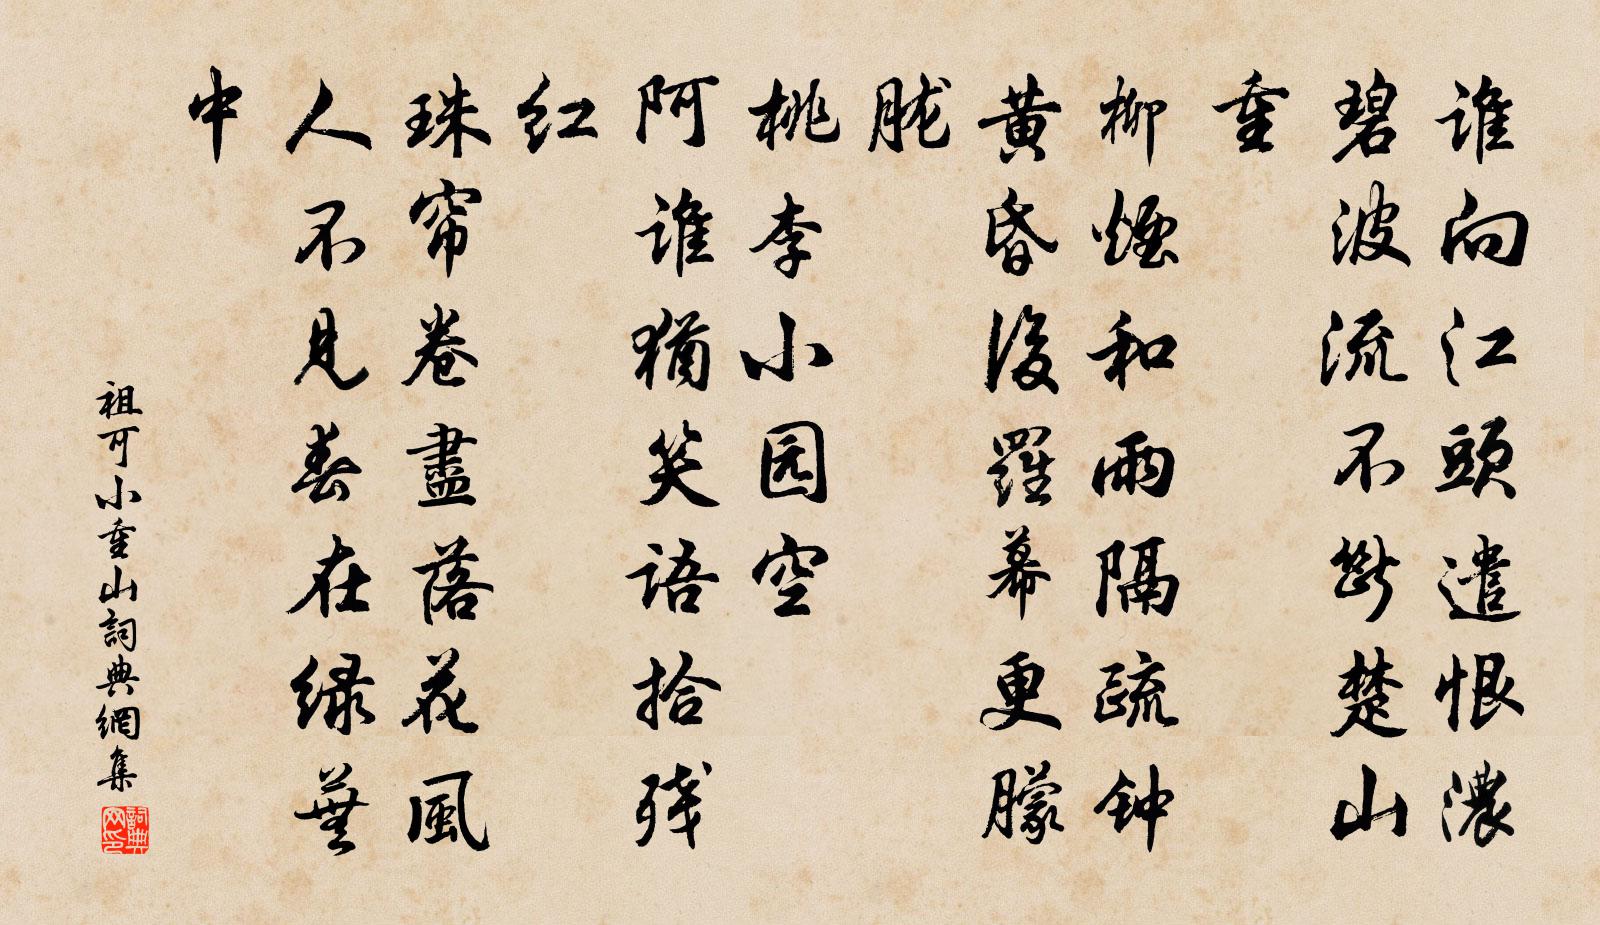 谁向江頭遣恨濃
碧波流不斷楚山
重
柳煙和雨隔疏钟
黄昏後羅幕更朦
胧
桃李小园空
阿谁猶笑语拾残
红
珠帘卷盡落花風
人不見春在绿蕪
中
祖可小重山詞典網集
詞典网印